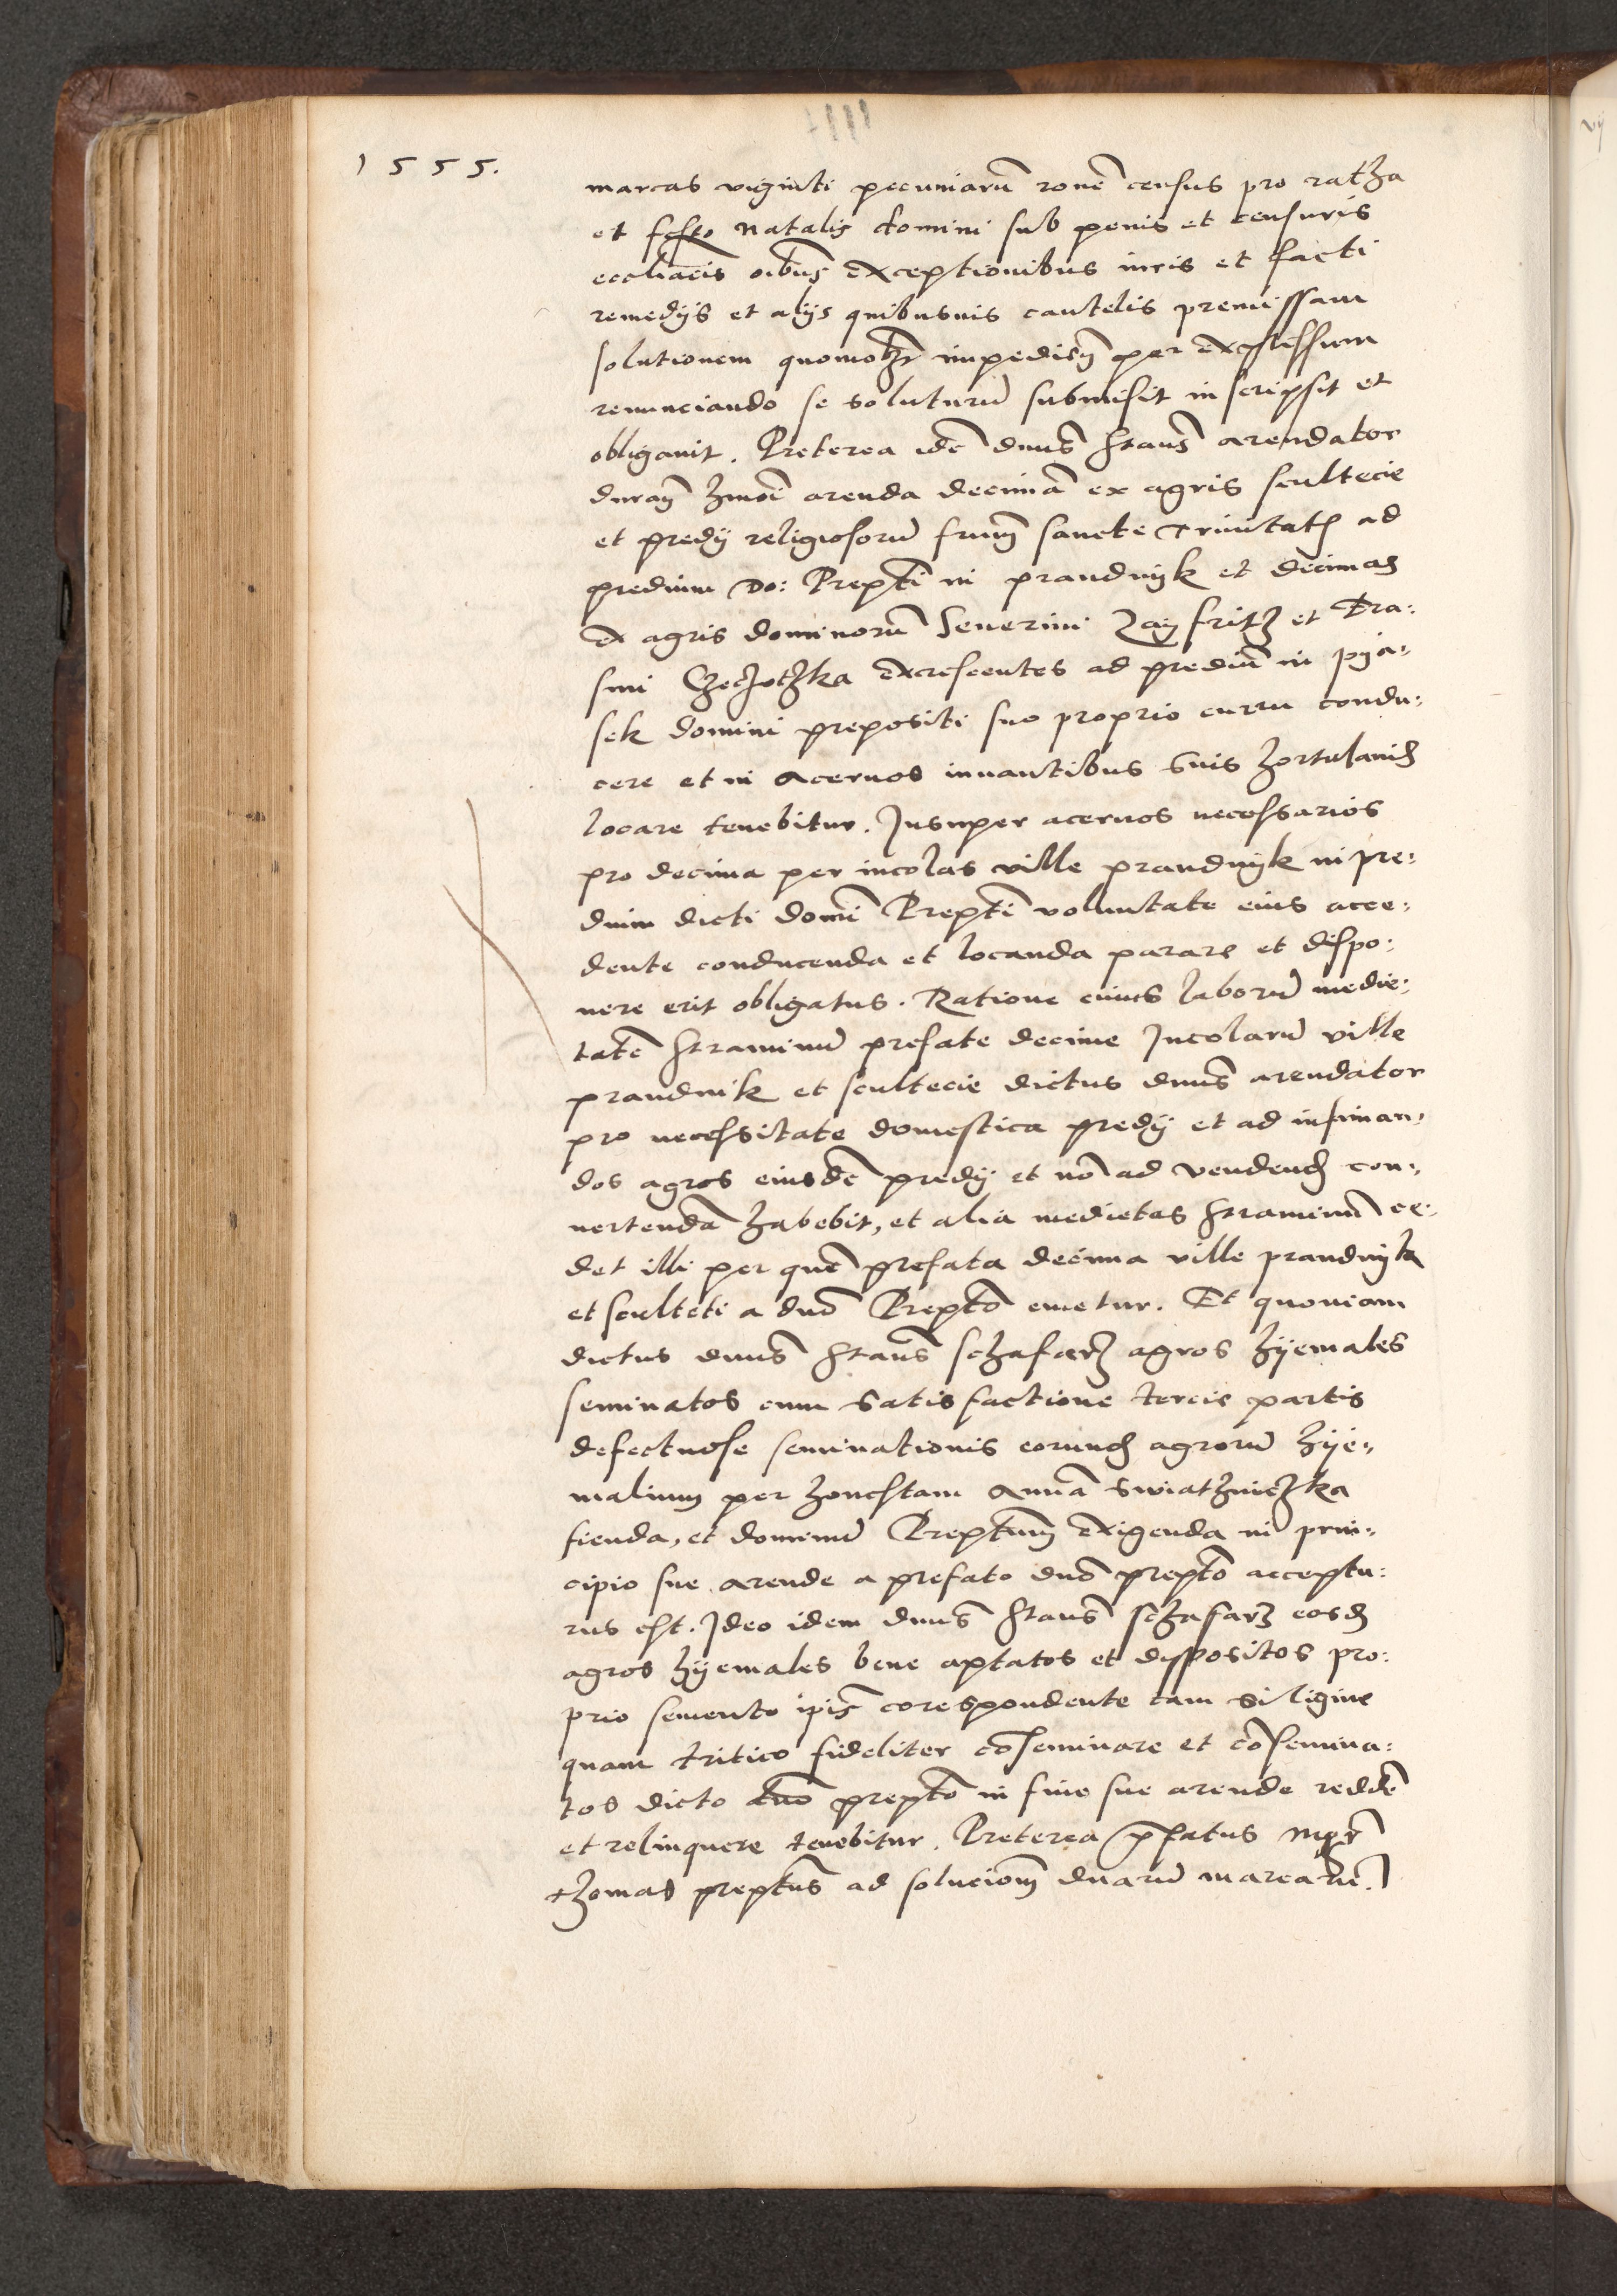 1555.
marcas viginti pecuniarũ rone͂ census pro ratha
et festo Natalis domini sub penis et censuris
eccl͂iacis oi͂bus exceptionibus iuris et facti
remedijs et alijs quibusuis cautelis premissam
solutionem quomo impediẽ per expressum
renunciando se soluturũ submisit inscripsit et
obligauit. Preterea idẽ dnũs Stanũs arendator
duraň hm̃oi arenda decimã ex agris scultecie
et predij religiosorũ frum̃ sancte trinitatis ad
predium do: Prepti in prandnijk et decimas
ex agris dominorũ Seuerini Zayfritz et Era:
smi Czeczotzka excrescentes ad prediũ in pya:
sek domini prepositi suo proprio curru condu:
cere et in aceruos iuuantibus suis hortulanis
locare tenebitur. Insuper aceruos necessarios
pro decima per incolas ville prandnijk in pre:
dium dicti domĩ Preptĩ voluntate eius acce:
dente conducenda et locanda parare et dispo:
nere erit obligatus. Ratione cuius laborũ medie:
tatẽ straminũ prefate decime Incolarũ ville
prandnik et scultecie dictus dnũs arendator
pro necessitate domestica predij et ad infiman:
dos agros eiusdẽ predij et nõ ad vendend con:
uertendã habebit, et alia medietas straminũ ce:
det illi per quẽ prefata decima ville prandnijk
et sculteti a dnõ Preptõ emetur. Et quoniam
dictus dnũs Stanũs schafarz agros hyemales
seminatos cum satisfactione tercie partis
defectuose seminationis eorund agrorũ hye:
malium per honestam Annã swiathniczka
fienda, et dominũ Preptum̃ exigenda in prin:
cipio sue arende a prefato dnõ preptõ acceptu:
rus est. Ideo idem dnũs Stanũs schafarz eosd
agros hyemales bene aptatos et dispositos pro:
prio semento ipis̃ corespondente tam siligine
quam tritico fideliter cõseminare et cõsemina:
tos dicto dnõ preptõ in fine sue arende reddẽ
et relinquere tenebitur. Preterea p̃fatus Mgr̃
thomas preptũs ad soluciom̃ duarũ marcarũ